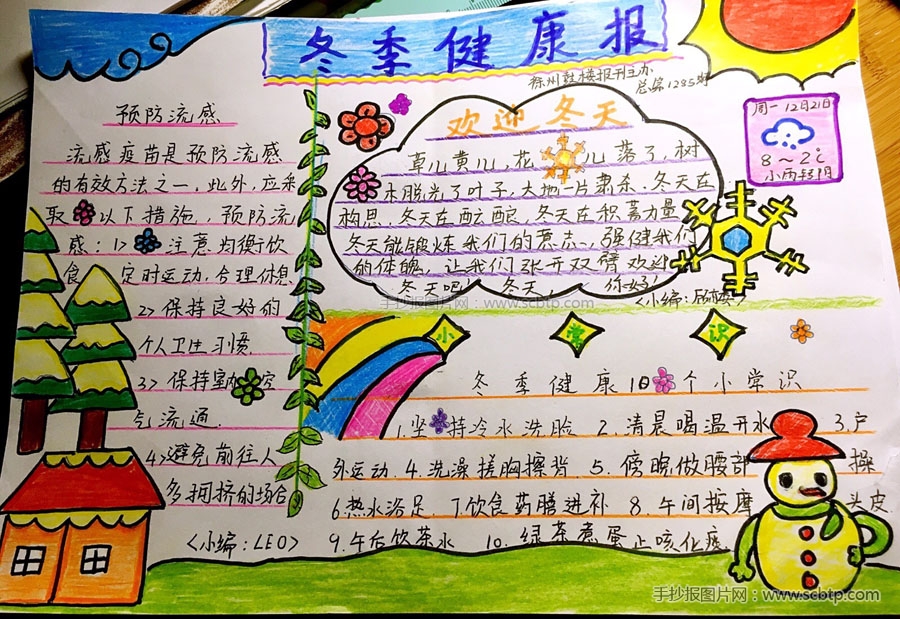 冬季健康报
徐州鼓楼报刊主办
总第1285期
周一 12月21日
8~2℃
小雨转阴
预防流感
流感疫苗是预防流感
的有效方法之一,此外,应采
取以下措施,预防流
感:1>注意均衡饮
食,定时运动,合理休息
2>保持良好的
个人卫生习惯.
3>保持室内空
气流通.
4>避免前往人
多拥挤的场合
<小编:LEO>
欢迎冬天
草儿黄儿,花儿落了,树
木脱光了叶子,大地一片肃杀.冬天在
构思.冬天在酝酿,冬天在积蓄力量
冬天能锻炼我们的意志,强健我们
的体魄,让我们张开双臂欢迎
冬天吧!冬天,你好!
<小编:
手抄报图片网:www.scbtp.com
小常识
冬季健康10个小常识
1.坚持冷水洗脸 2.清晨喝温开水 3.户
外运动 4.洗澡搓胸擦背 5.傍晚做腰部操
6.热水浴足 7.饮食药膳进补 8.午间按摩头皮
9.午后饮茶水 10.绿茶煮蛋止咳化痰
手抄报图片网:www.scbtp.com